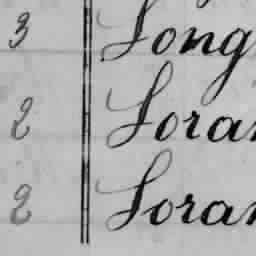 3 Long
2 Loran
2 Loran